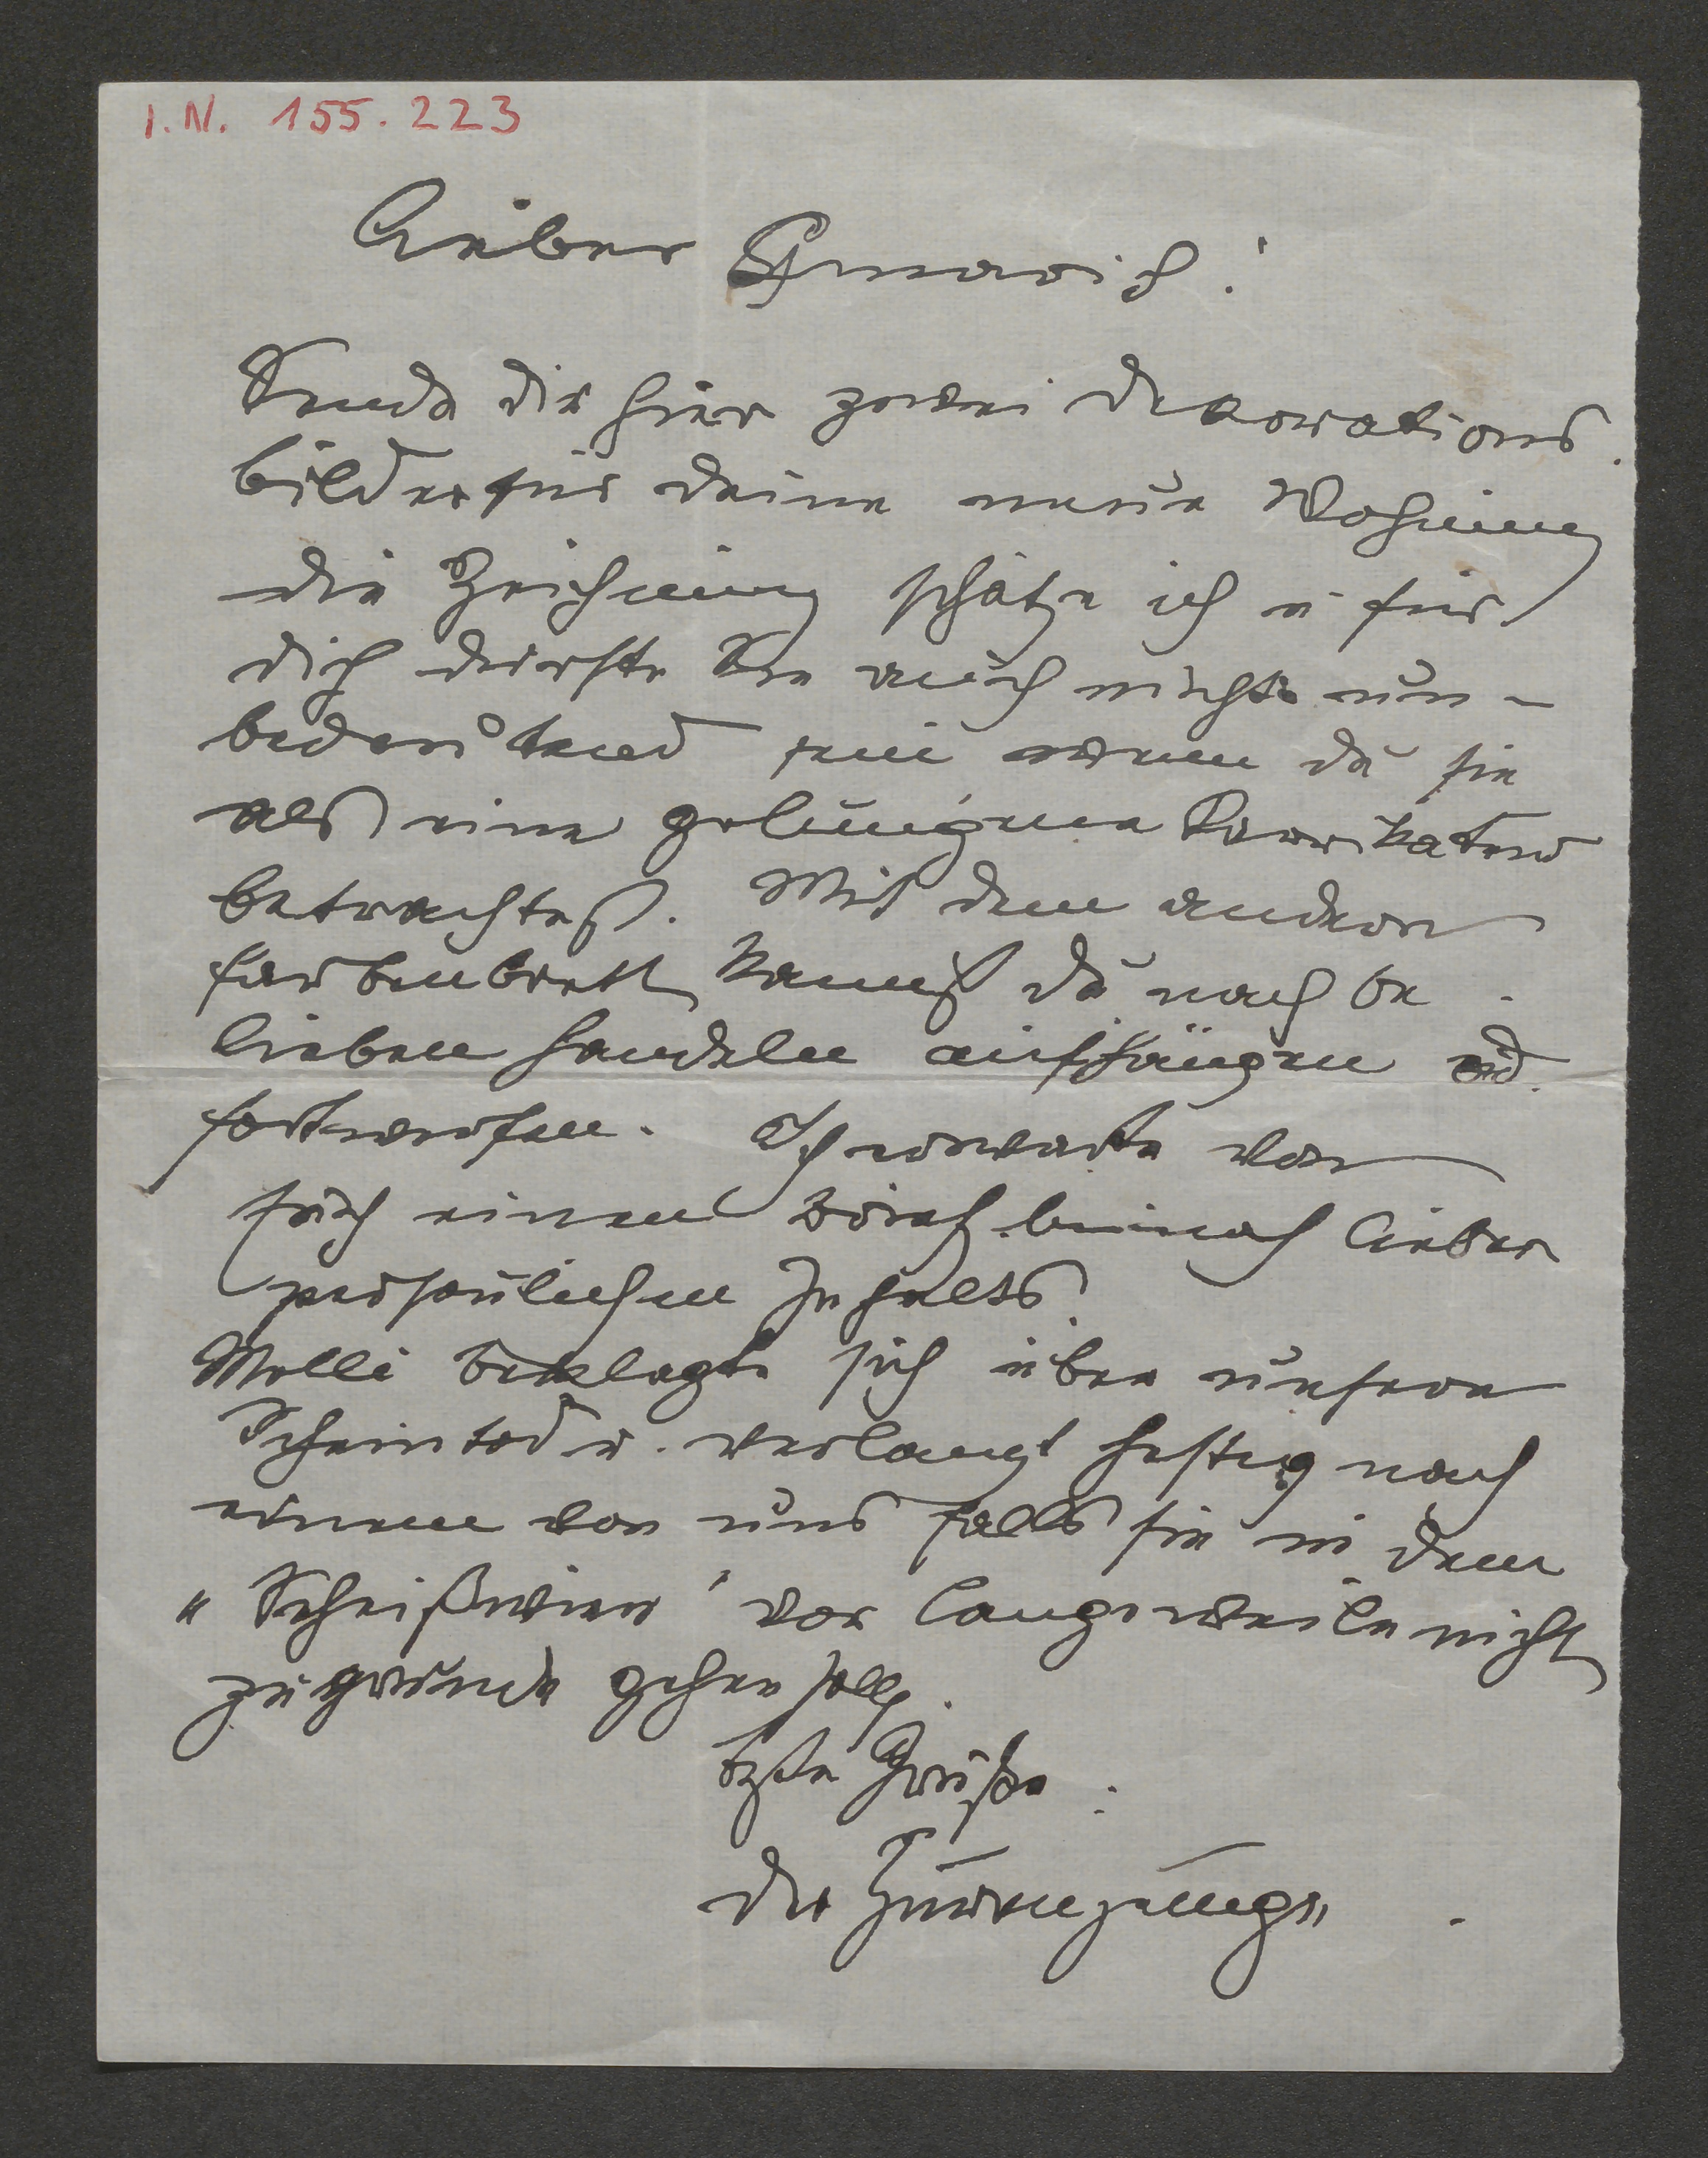 I.N. 155.223
Lieber
Sende dir hier zwei Dekorations
bilder für deine neue Wohnung
die Zeichnung schätze ich u für
dich dürfte Sie auch nicht un-
bedeutend sein wenn du sie
als eine gelungene Karrikatur
betrachtest. Mit dem andern
farbenbrett kannst du nach be
lieben handeln aufhängen od.
fortwerfen. Ich erwarte von
einen lieber
persönlichen Inhalts.
Molli beklagt sich über unsern
Scheintod u. verlangt heftig nach
einem von uns falls sie in dem
"Scheißwien" vor langerweile nicht
zugrunde gehen soll.
bste Grüße.